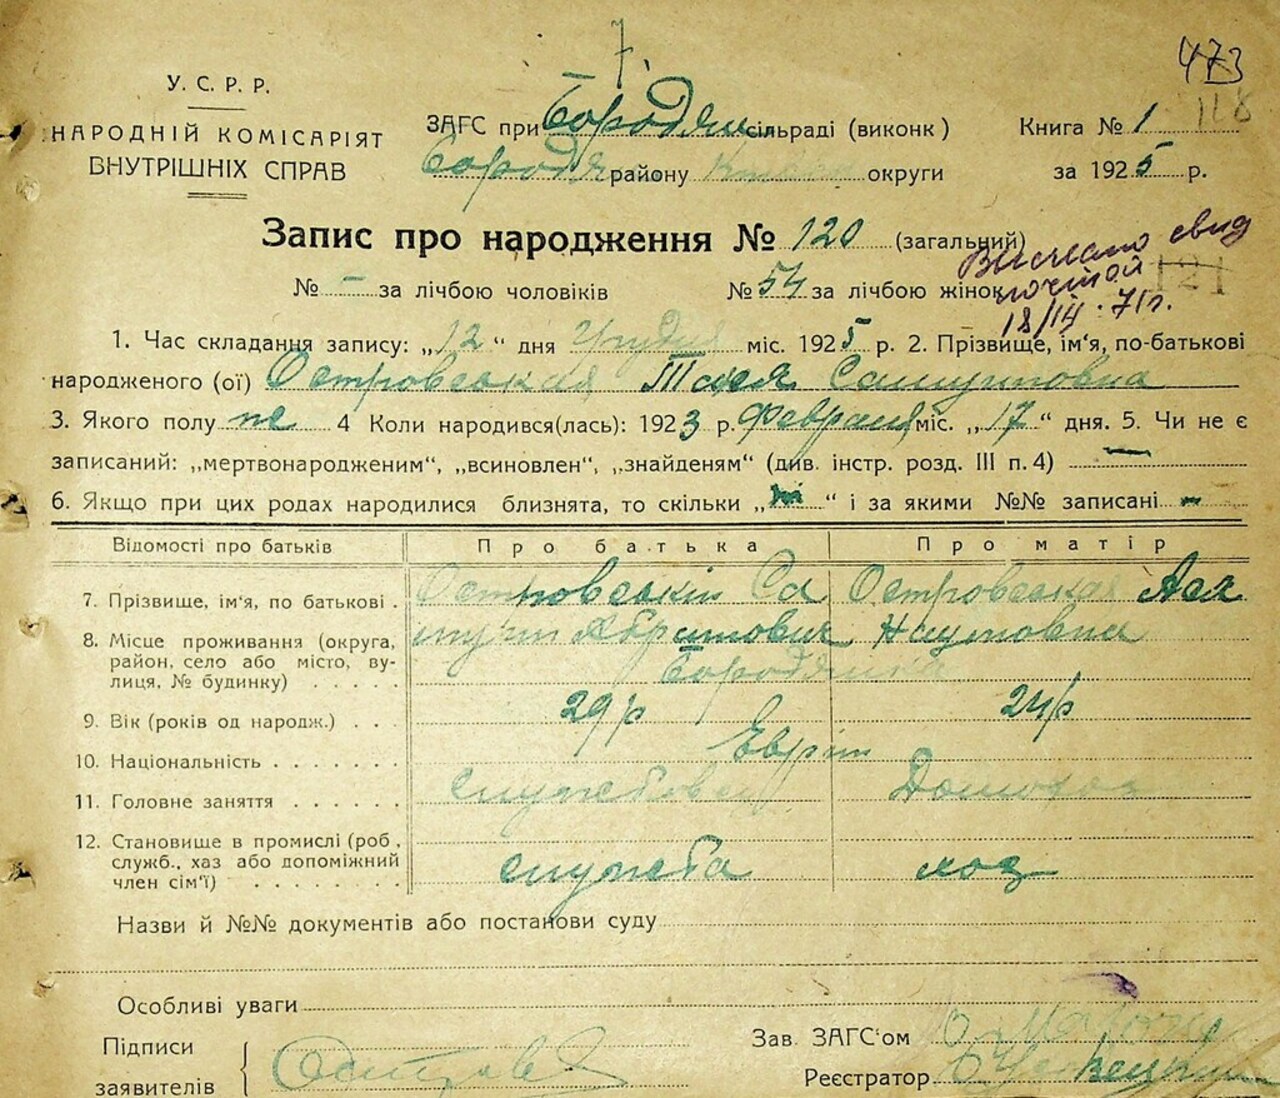 7.
473
118
У. С. Р. Р.
НАРОДНІЙ КОМІСАРІЯТ
ВНУТРІШНІХ СПРАВ
ЗАГС при Бородян сільраді (виконк )
Бородя району округи
Книга № 1
за 1925 р.
Запис про народження № 120 (загальний)
№ – за лічбою чоловіків № 54 за лічбою жінок
Выслано свид
почтой
18/III. 71г.
121
1. Час складання запису: „12" дня Грудня міс. 1925 р. 2. Прізвище, ім'я, по-батькові
народженого (ої) Островськая Самуиловна
3. Якого полу же 4 Коли народився(лась): 1923 р. Февраля міс. „17" дня. 5. Чи не є
записаний: „мертвонародженим", „всиновлен", „знайденям" (див. інстр. розд. III п. 4) —
6. Якщо при цих родах народилися близнята, то скільки „ " і за якими №№ записані –
Відомості про батьків Про батька Про матір
7. Прізвище, ім'я, по батькові . Островській Са Островськая Ася
муил Абрамович Наумовна
8. Місце проживання (округа,
район, село або місто, ву-
лиця, № будинку) . . . . . Бородянка
9. Вік (років од народж.) . . . 29 р 24 р
10. Національність . . . . . . . Евреи
11. Головне заняття . . . . . . службовец Домохоз
12. Становище в промислі (роб.,
служб., хаз або допоміжний
член сім'ї) . . . . . . . . служба хоз
Назви й №№ документів або постанови суду
Особливі уваги
Підписи
заявителів
Зав. ЗАГС'ом
Реєстратор